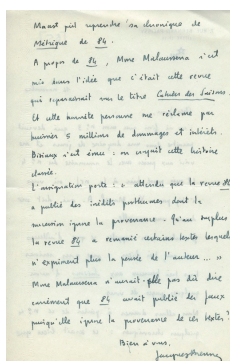 Maast put reprendre sa chronique de
Métrique de 84.
A propos de 84, Mme Malausséna s'est
mis dans l'idée que c'était cette revue
qui reparaissait sous le titre Cahiers des Saisons
Et cette aimable personne me réclame par
huissier 5 millions de dommages et intérêts.
s'est émue : on croyait cette histoire
classée.
L'assignation porte : « attendu que la revue 84
a publié des inédits posthumes dont la
succession ignore la provenance. Qu'au surplus
la revue 84 a remanié certains textes lesquels
n'expriment plus la pensée de l'auteur... »
Mme Malausséna n'aurait-elle pas dû dire
carrément que 84 avait publié des faux
puisqu'elle ignore la provenance de ces textes ?
Bien à vous.
Jacques Brenner